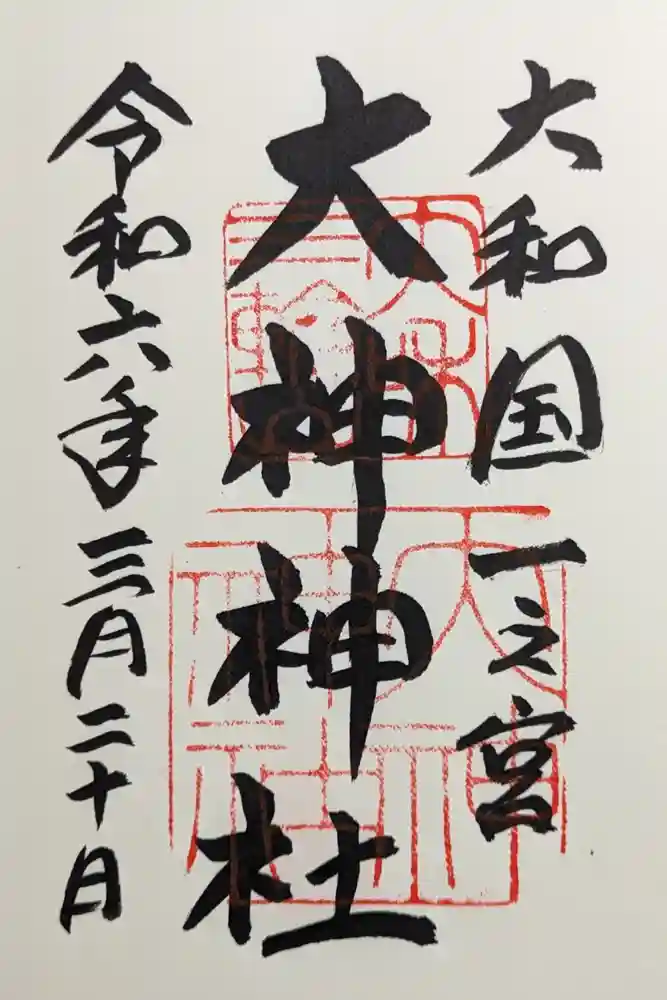 大和国一之宮
大神神社
令和六年三月二十日
大神
神社